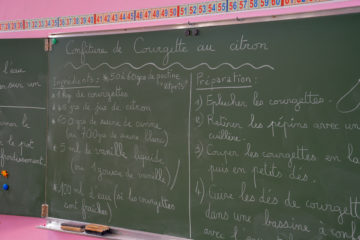 38 39 40 41 42 43 44 45 46 47 48 49 50 51 52 53 54 55 56 57 58 59 60
Confiture de Courgette au citron
Ingrédients : 50 à 60 g de pectine
"Vitpris"
1 kg de courgettes
de jus de citron
600 g de sucre de canne
(ou 700 g de sucre blanc)
5 ml de vanille liquide
(ou 1 gousse de vanille)
100 ml d'eau (si les courgettes
sont fraîches)
Préparation :
1) Eplucher les courgettes.
2) Retirer les pépins avec une
cuillère.
3) Couper les courgettes en
puis en petits dés.
4) Cuire les dés de courgette
dans une bassine à
avec
l'eau
sur un
le pot